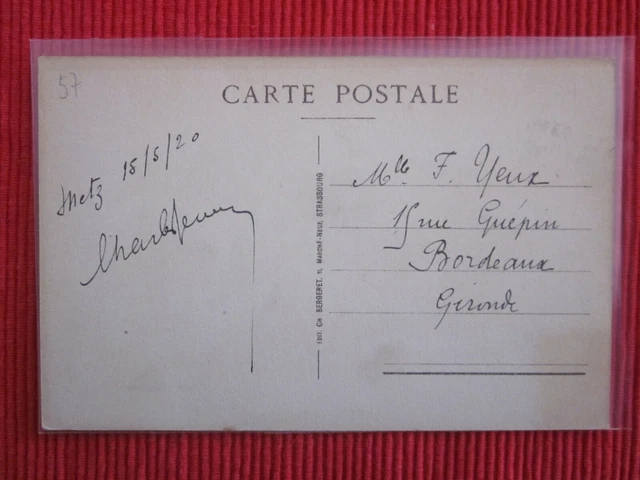 57
CARTE POSTALE
Metz 15/5/20
Mlle F. Yeux
15 rue Guépin
Bordeaux
Gironde
EDIT. CH BERGERET, 11, MARCHÉ-NEUF, STRASBOURG